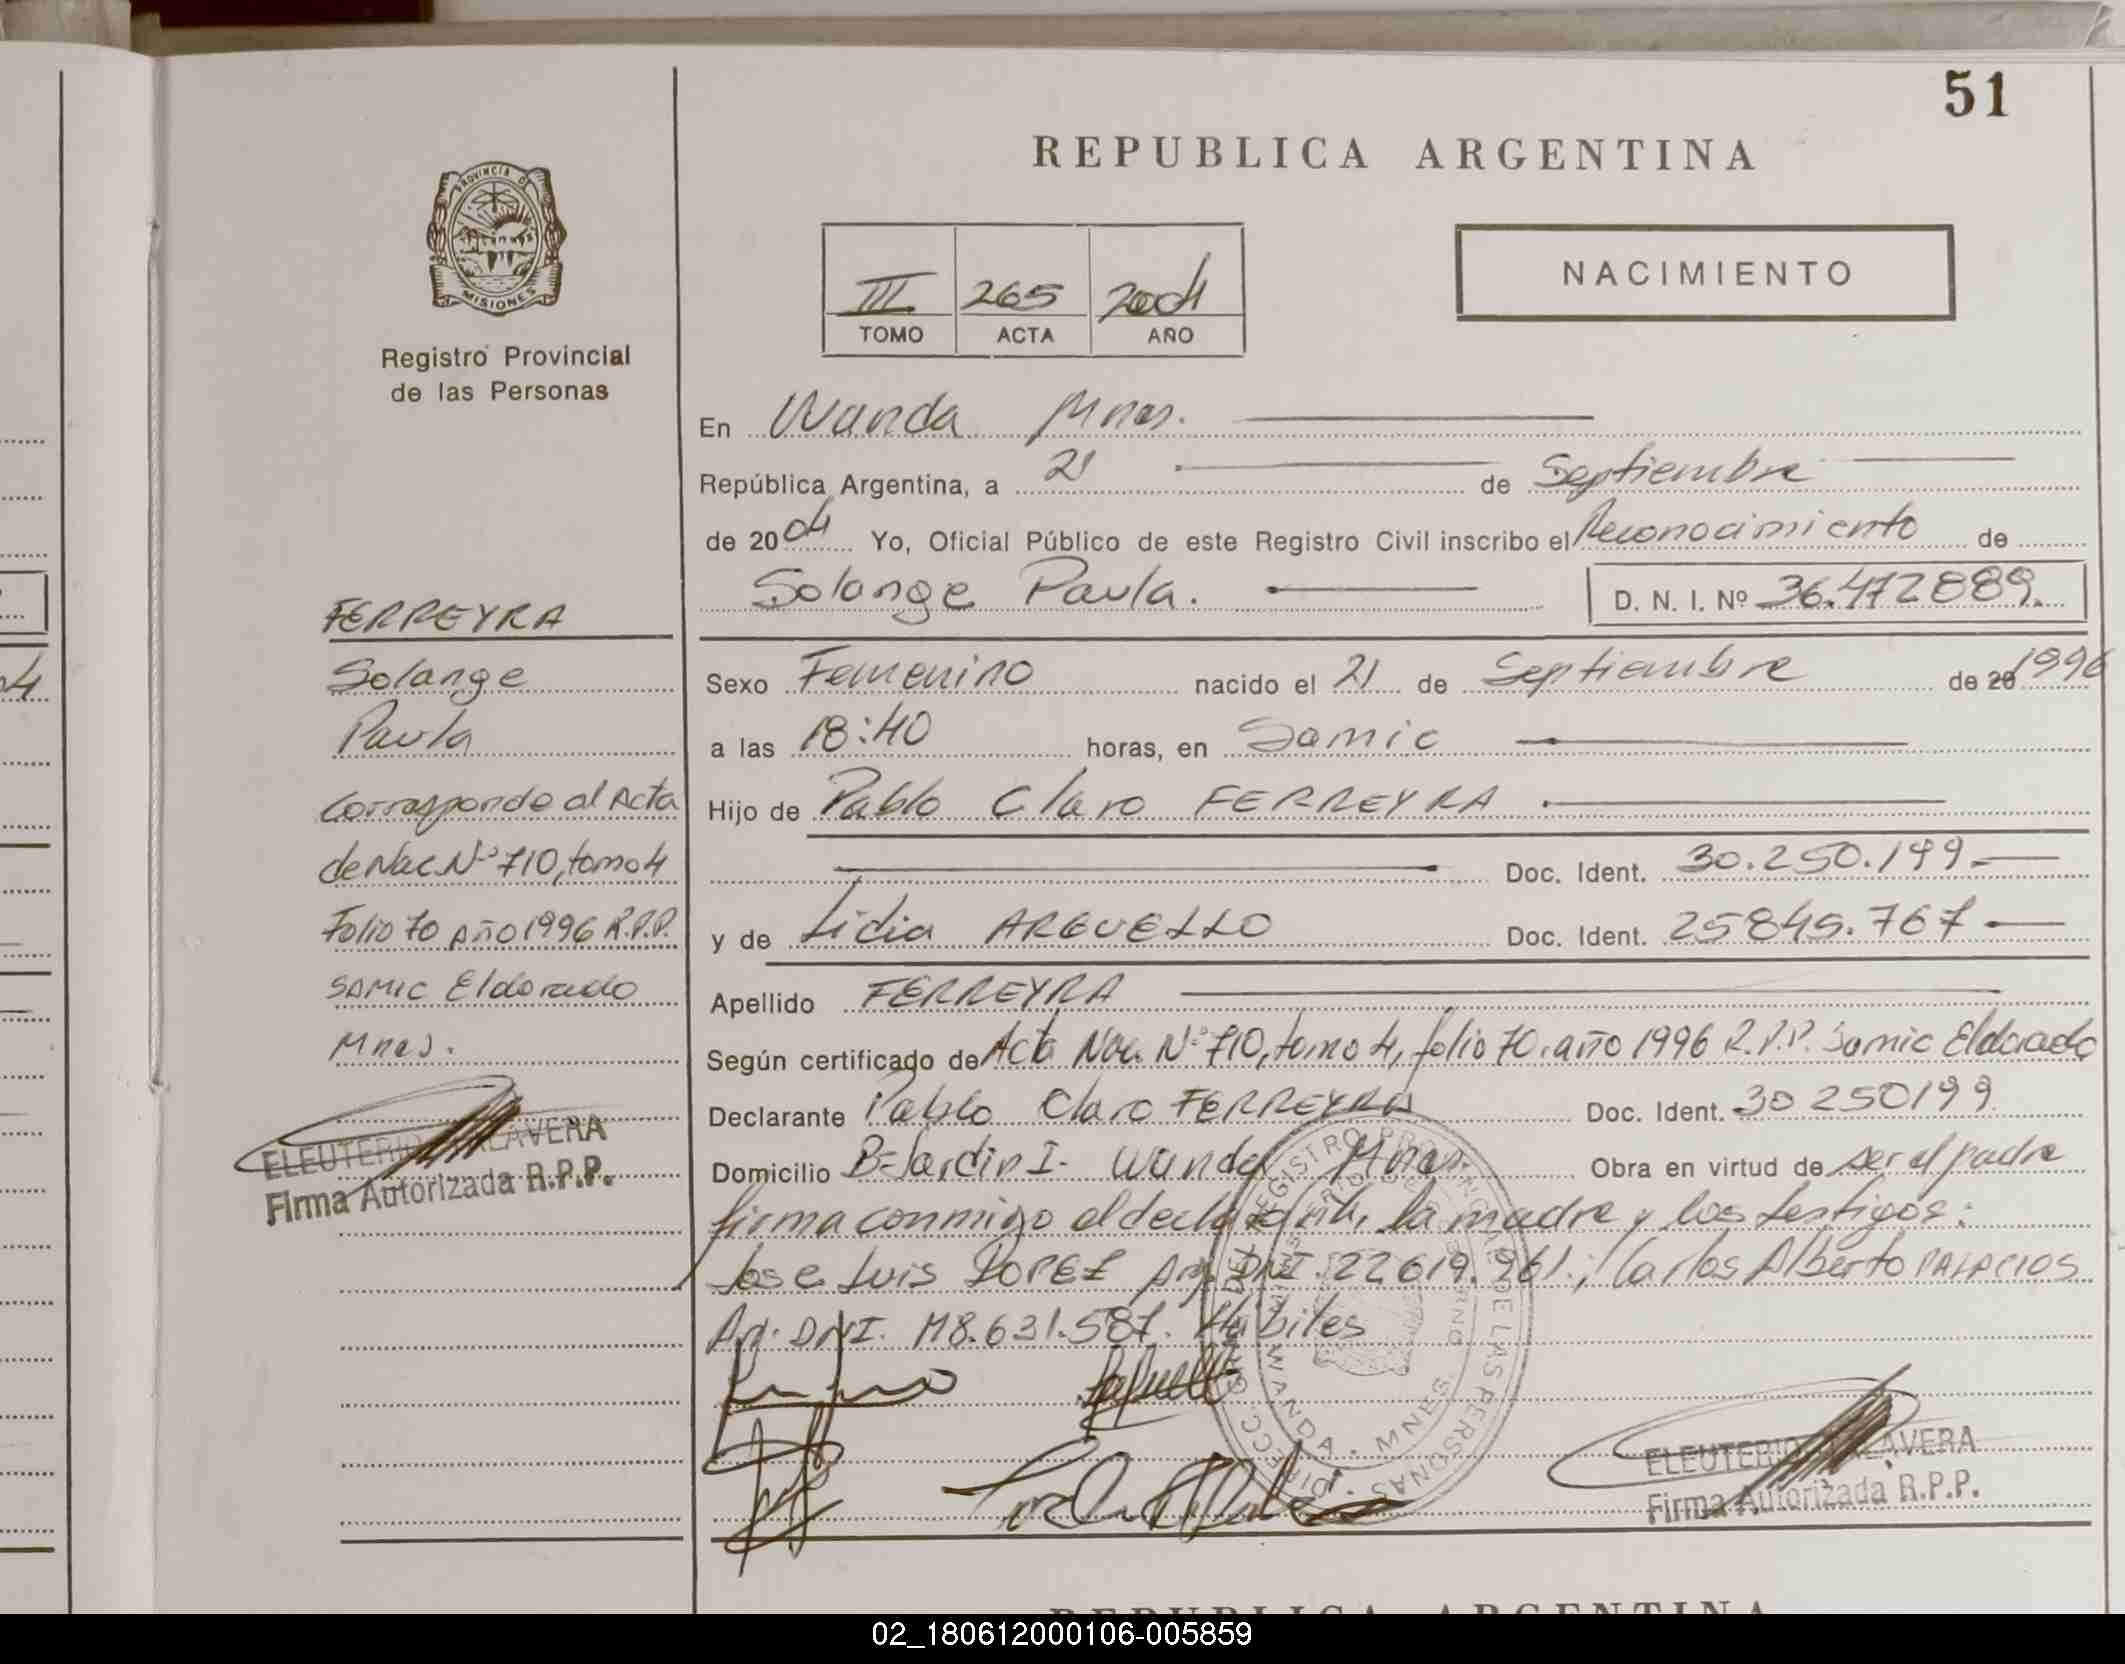 51
REPUBLICA ARGENTINA
PROVINCIA DE
MISIONES
Registro Provincial
de las Personas
III 265 2004
TOMO ACTA AÑO
NACIMIENTO
En Wanda Mnes.
República Argentina, a 21 de Septiembre
de 2004 Yo, Oficial Público de este Registro Civil inscribo el Reconocimiento de
Solange Paula. D. N. I. Nº 36.472889.
Sexo Femenino nacido el 21 de Septiembre de 20 1996
a las 18:40 horas, en Samic
Hijo de Pablo Claro FERREYRA
Doc. Ident. 30.250.199
y de Lidia ARGUELLO Doc. Ident. 25845.767
Apellido FERREYRA
Según certificado de Acta Nac. Nº 710, tomo 4, folio 70. año 1996 R.P.P. Samic Eldorado
Declarante Pablo Claro FERREYRA Doc. Ident. 30 250199
Domicilio Bº Jardin I - Wanda Mnes. Obra en virtud de ser el padre
firma conmigo el declarante, la madre y los testigos:
Jose Luis LOPEZ Arg. DNI. 22619.961.; Carlos Alberto PALACIOS
Arg. DNI. M8.631.587. Hábiles
FERREYRA
Solange
Paula
Corresponde al Acta
de Nac. Nº 710, tomo 4
Folio 70 Año 1996 R.P.P.
SAMIC Eldorado
Mnes.
ELEUTERIO TALAVERA
Firma Autorizada R.P.P.
ELEUTERIO TALAVERA
Firma Autorizada R.P.P.
WANDA - MNES
REPUBLICA ARGENTINA
02_180612000106-005859